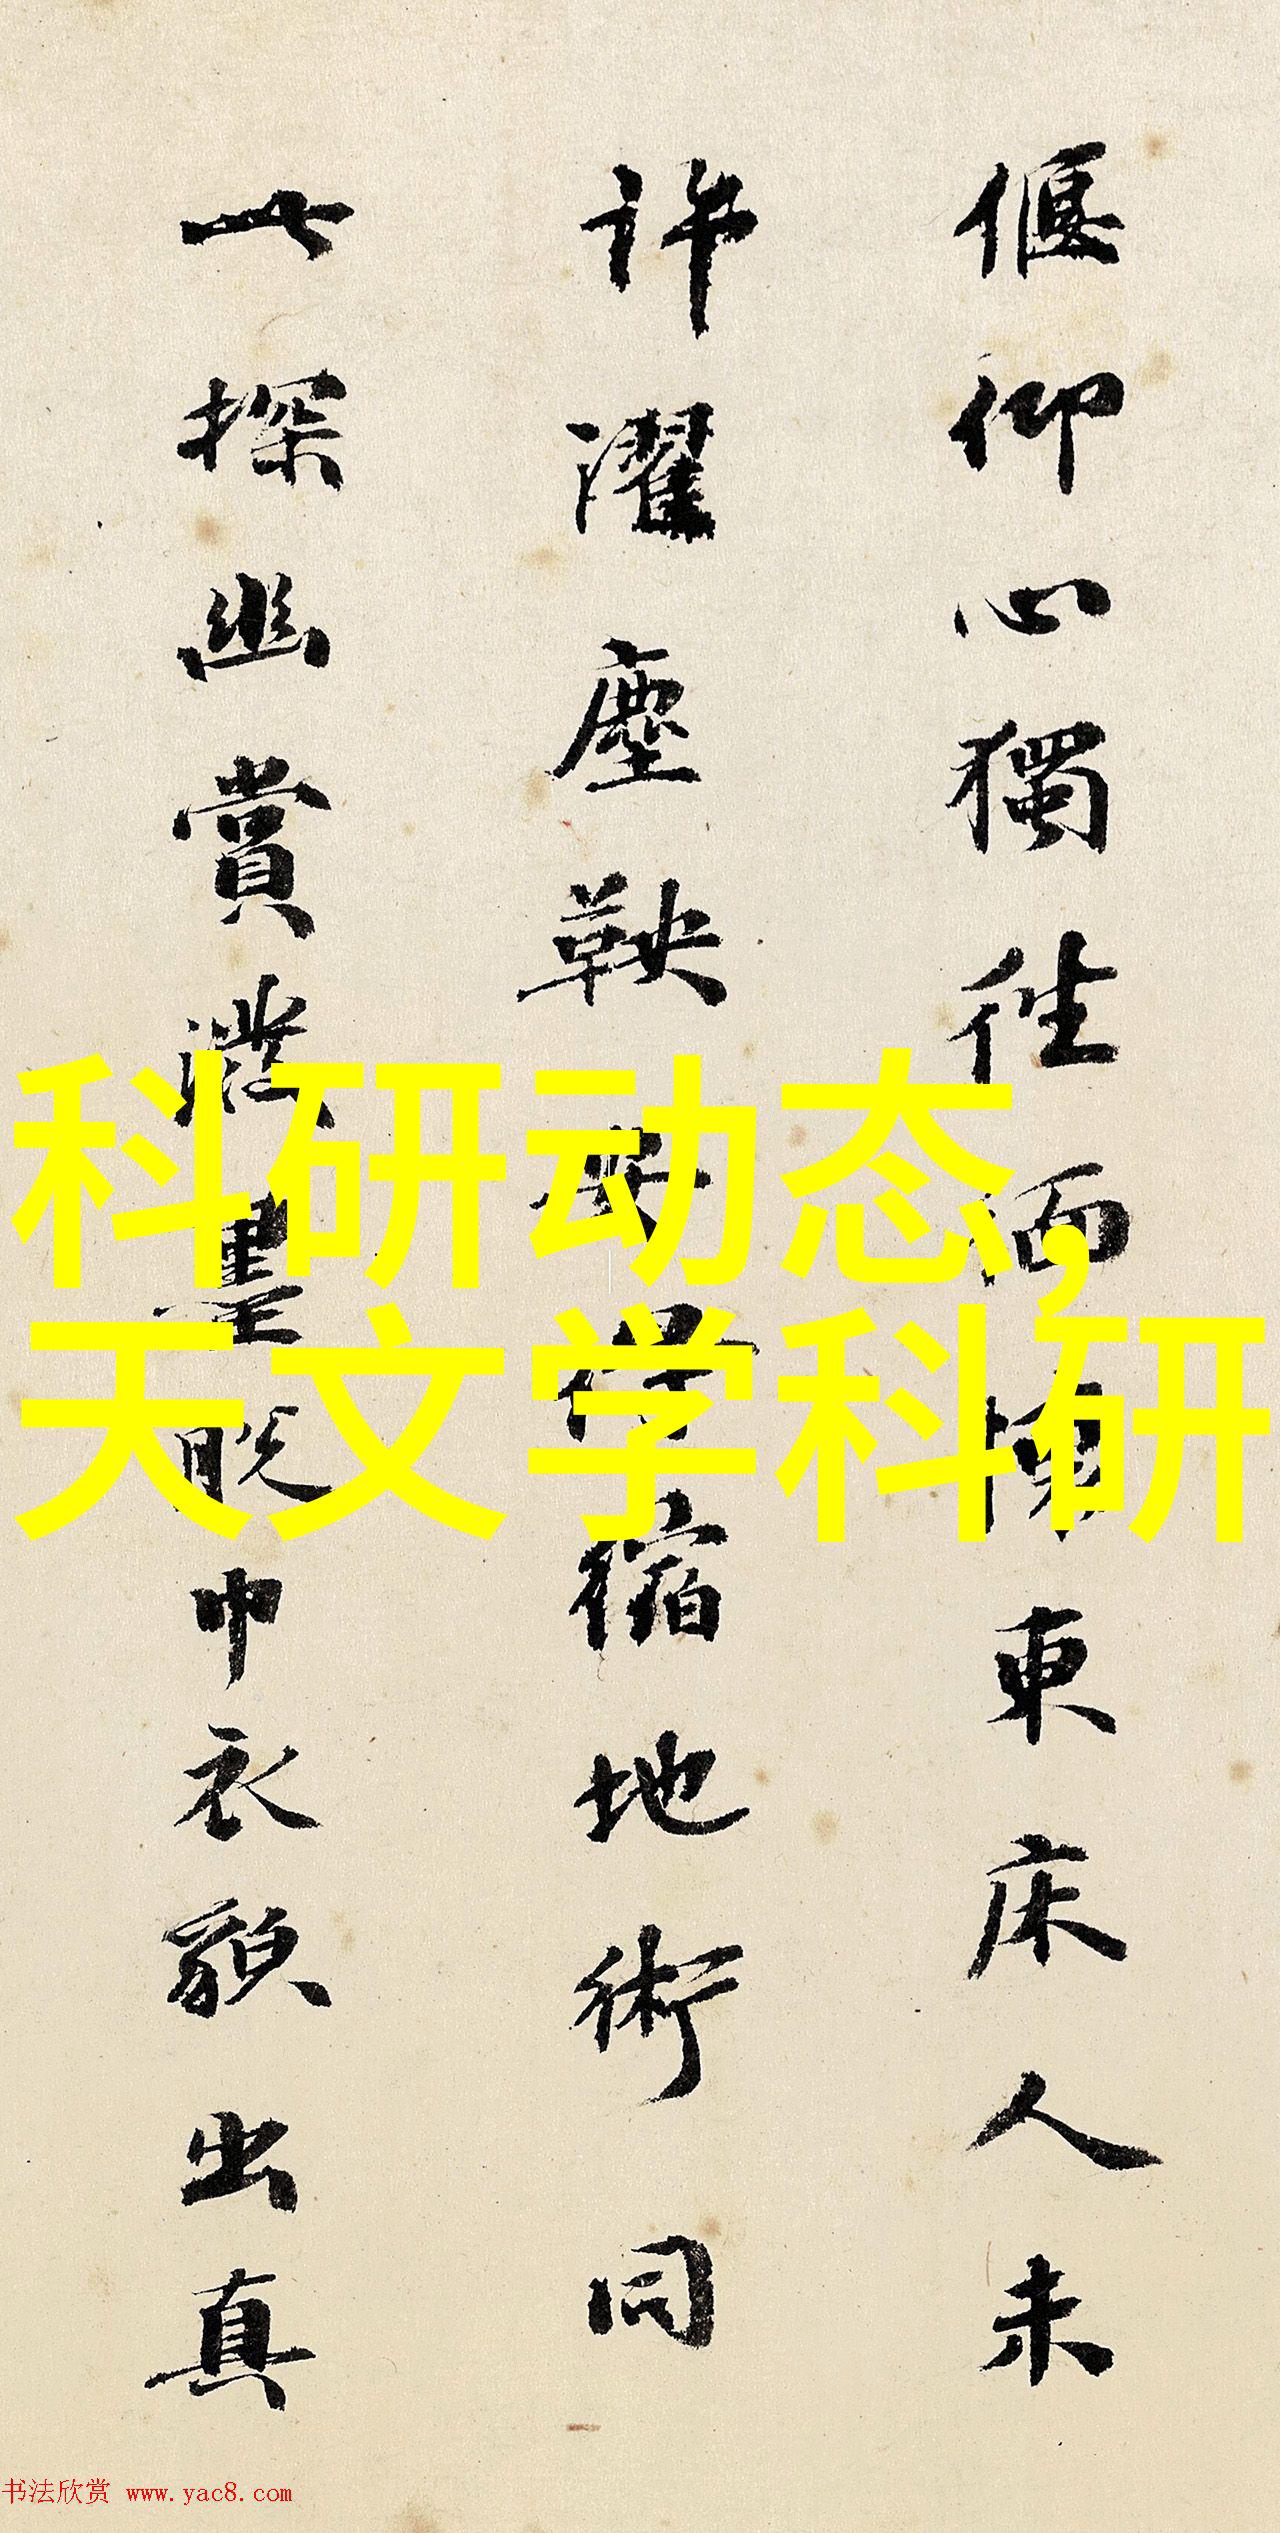 偃仰心獨往面 東床人未
許濯塵鞅 縮地術同
一探幽賞潑墨脫巾衣貌出真
科研动态,
天文学科研
书法欣赏 www.yac8.com